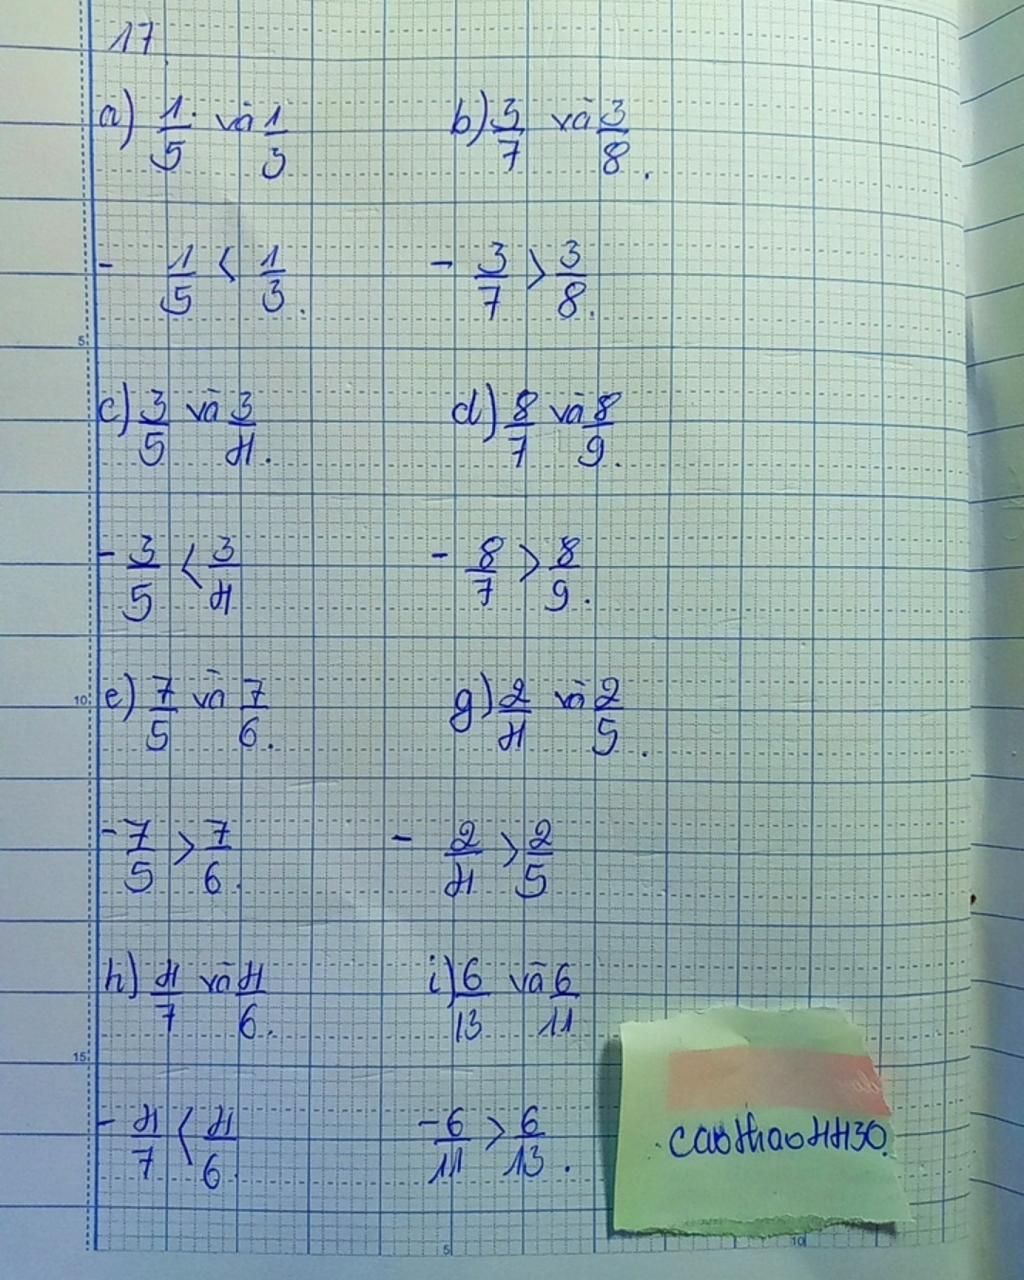 17
a) 1/5 và 1/3 b) 3/7 và 3/8.
- 1/5 < 1/3. - 3/7 > 3/8.
5
c) 3/5 và 3/4. d) 8/7 và 8/9.
- 3/5 < 3/4 - 8/7 > 8/9.
10
e) 7/5 và 7/6. g) 2/4 và 2/5.
- 7/5 > 7/6. - 2/4 > 2/5
h) 4/7 và 4/6. i) 6/13 và 6/11
15
- 4/7 < 4/6. - 6/11 > 6/13.
caothao4430.
5 10